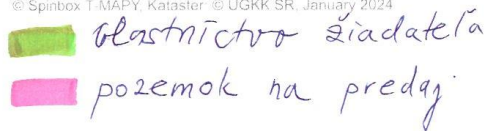 © Spinbox T-MAPY, Kataster: © ÚGKK SR, January 2024
vlastníctvo žiadateľa
pozemok na predaj